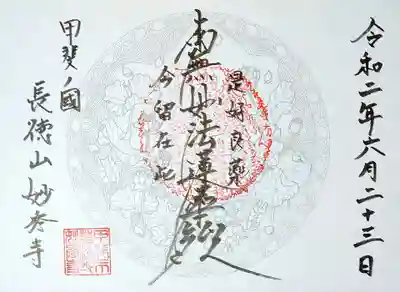 令和二年六月二十三日
是好良薬
南無妙法蓮華経
今留在此
甲斐ノ國
長徳山妙
寺